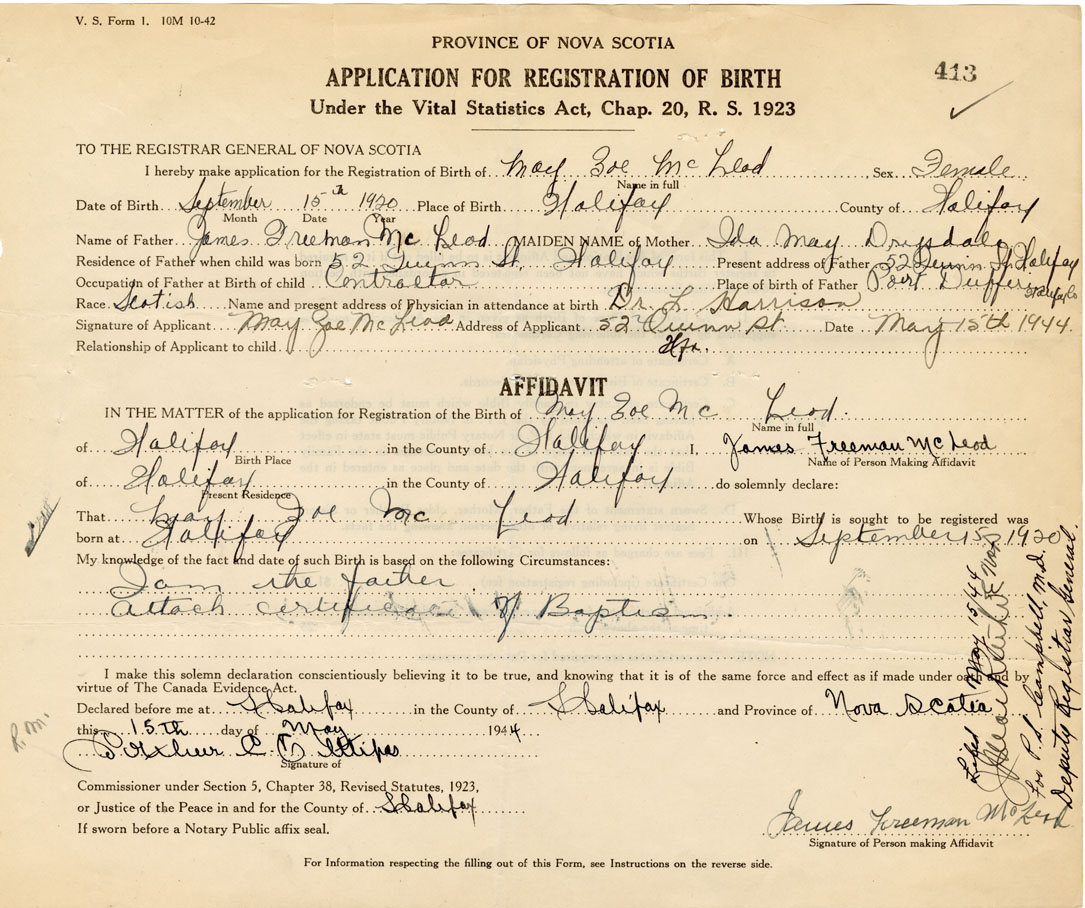 V. S. Form 1. 10M 10-42
PROVINCE OF NOVA SCOTIA
413
APPLICATION FOR REGISTRATION OF BIRTH
Under the Vital Statistics Act, Chap. 20, R. S. 1923
TO THE REGISTRAR GENERAL OF NOVA SCOTIA
I hereby make application for the Registration of Birth of May Zoe McLeod Sex Female
Name in full
Date of Birth September 15th 1920 Place of Birth Halifax County of Halifax
Month Date Year
Name of Father James Freeman McLeod MAIDEN NAME of Mother Ida May Drysdale
Residence of Father when child was born 52 Quinn St. Halifax Present address of Father 52 Quinn St Halifax
Occupation of Father at Birth of child Contractor Place of birth of Father Port Dufferin Halifax Co
Race Scotish Name and present address of Physician in attendance at birth Dr. L. Harrison
Signature of Applicant May Zoe McLeod Address of Applicant 52 Quinn St Date May 15th 1944.
Hfx.
Relationship of Applicant to child
AFFIDAVIT
IN THE MATTER of the application for Registration of the Birth of May Zoe Mc Leod.
Name in full
of Halifax in the County of Halifax I, James Freeman McLeod
Birth Place Name of Person Making Affidavit
of Halifax in the County of Halifax do solemnly declare:
Present Residence
That May Zoe Mc Leod Whose Birth is sought to be registered was
born at Halifax on September 15 1920
My knowledge of the fact and date of such Birth is based on the following Circumstances:
I am the father
attach certificate of Baptism.
I make this solemn declaration conscientiously believing it to be true, and knowing that it is of the same force and effect as if made under oath and by
virtue of The Canada Evidence Act.
Declared before me at Halifax in the County of Halifax and Province of Nova Scotia
this 15th day of May 1944
Arthur C
Signature of
Commissioner under Section 5, Chapter 38, Revised Statutes, 1923,
or Justice of the Peace in and for the County of Halifax
If sworn before a Notary Public affix seal.
James Freeman McLeod
Signature of Person making Affidavit
For Information respecting the filling out of this Form, see Instructions on the reverse side.
R.M.
Filed May 15/44
for P.S. Campbell, M.D.
Deputy Registrar General.